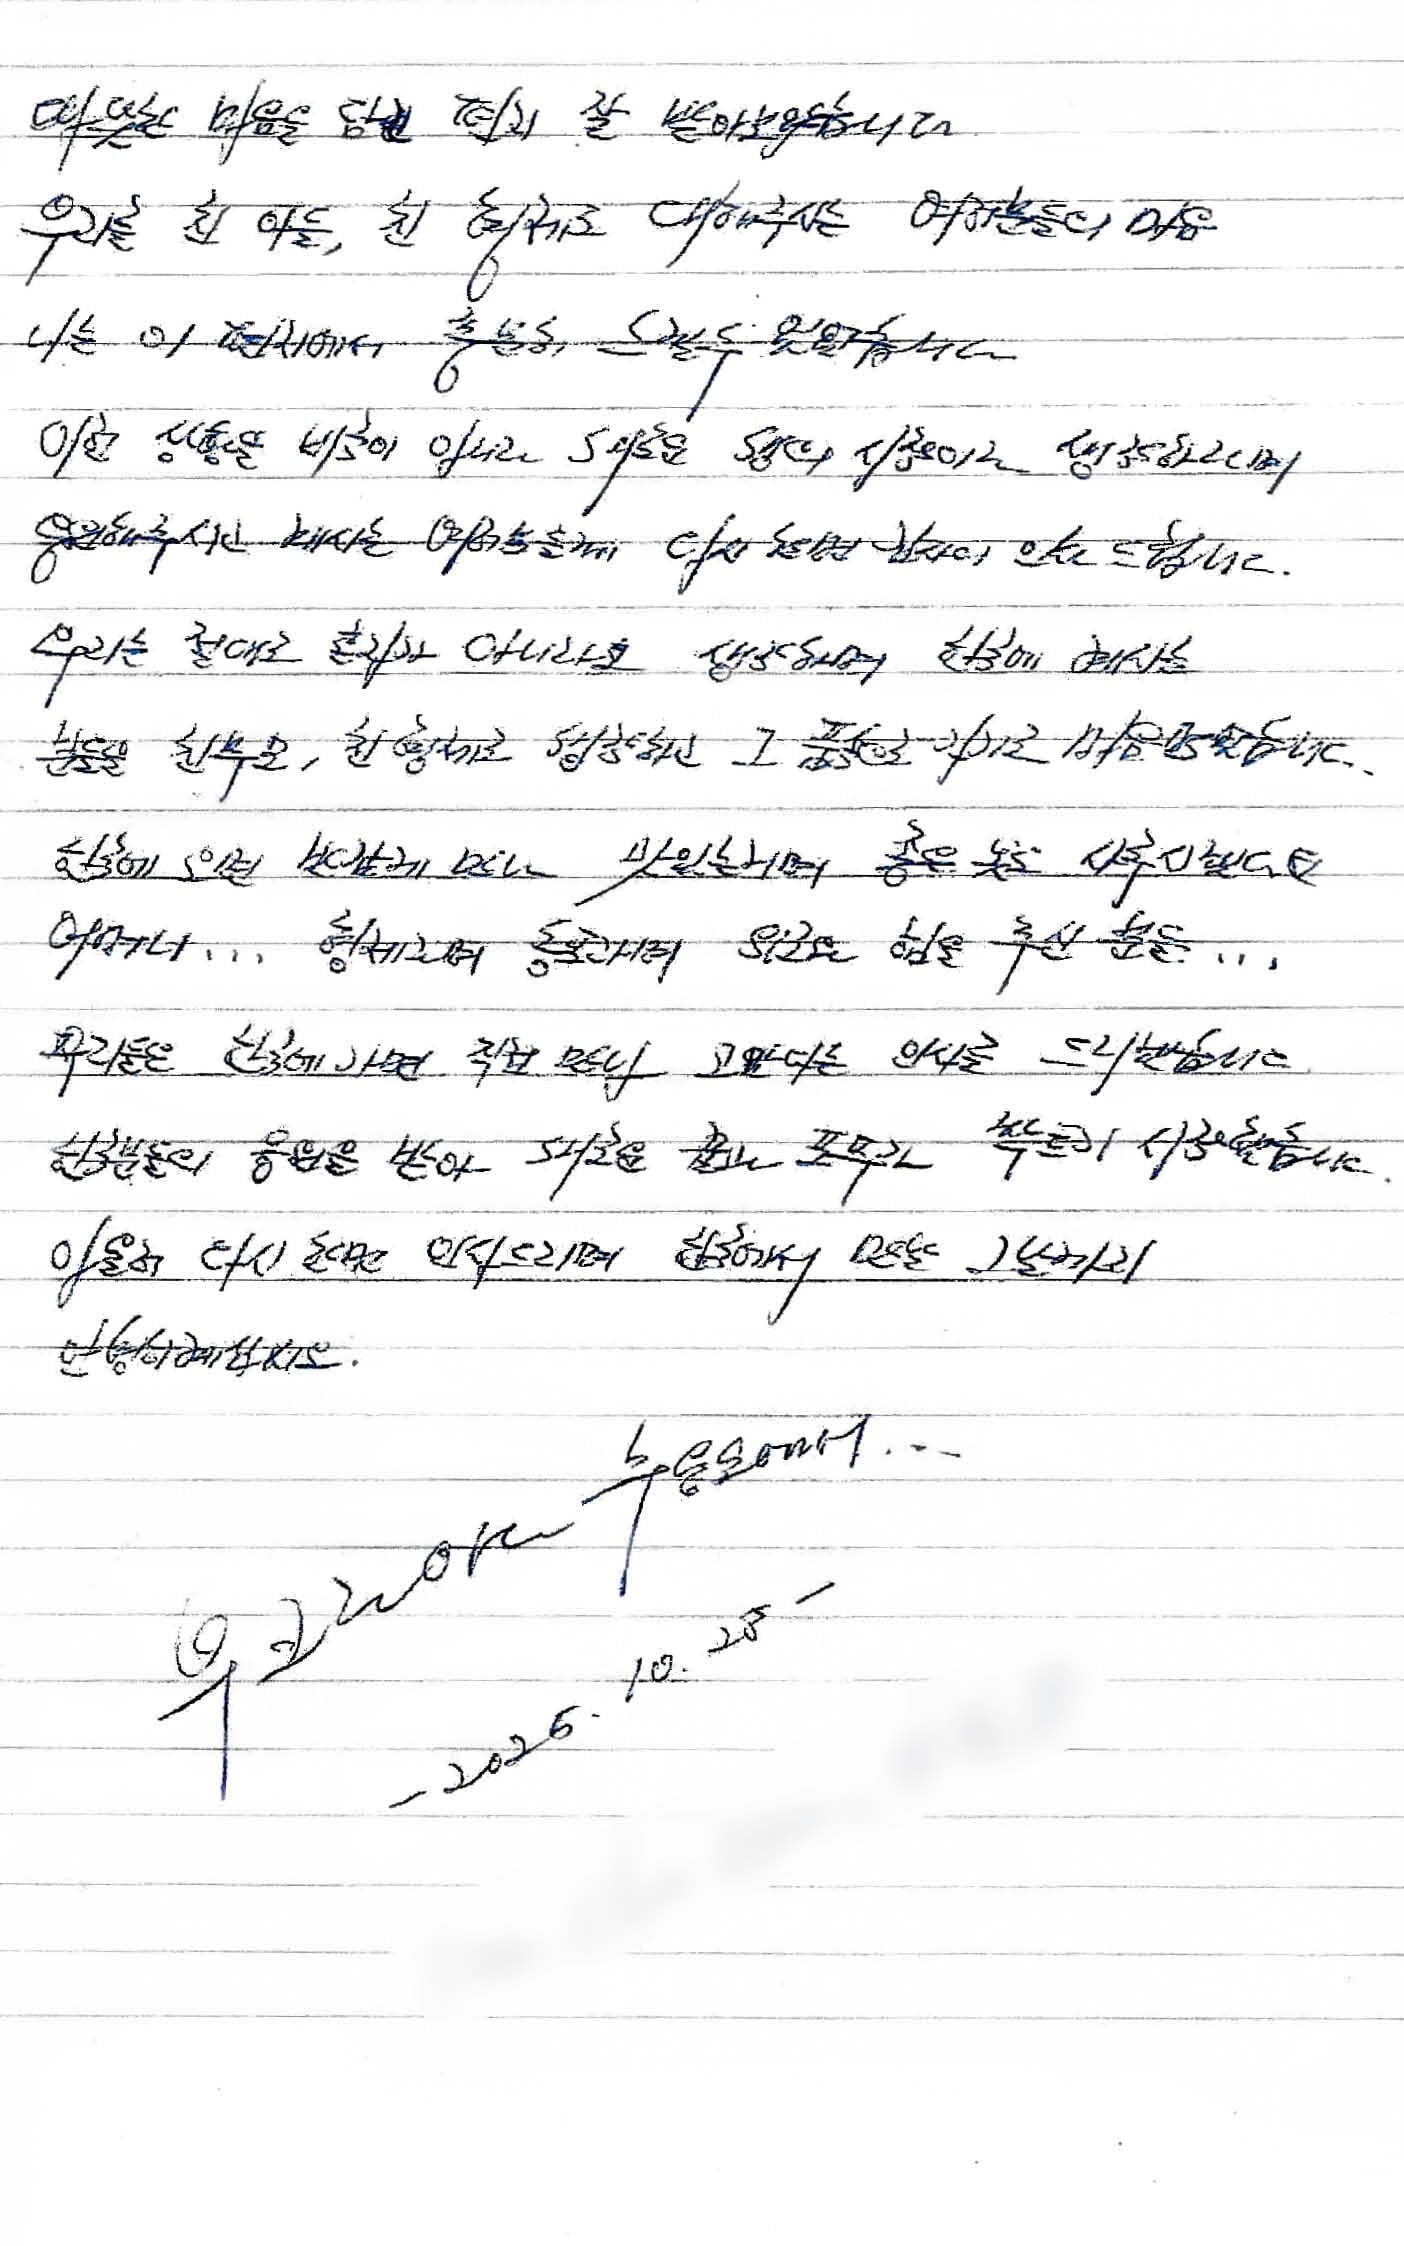 따뜻한 마음을 담은 편지 잘 받아보았습니다
우리를 친 아들, 친 형제로 대해주시는 여러분들의 마음
나는 이 편지에서 충분히 느낄수 있었습니다
이런 상황을 비극이 아니라 새로운 생의 시작이라 생각하라며
응원해주시고 계시는 여러분들께 다시 한번 감사의 인사 드립니다.
우리는 절대로 혼자가 아니라고 생각하며 한국에 계시는
분들을 친부모, 친 형제로 생각하고 그 품속으로 가기로 마음 먹었습니다.
한국에 오면 반갑게 만나 맛있는거며 좋은 옷도 사주시겠다던
어머니... 형제라며 동포라며 위로와 힘을 주신 분들...
우리들은 한국에 가면 직접 만나 고맙다는 인사를 드리겠습니다
한국분들의 응원을 받아 새로운 꿈과 포부가 싹트기 시작했습니다.
이울러 다시 한번 인사드리며 한국에서 만나는 그날까지
안녕히계십시오.
우크라이나 수용소에서...
-2025. 10. 28-